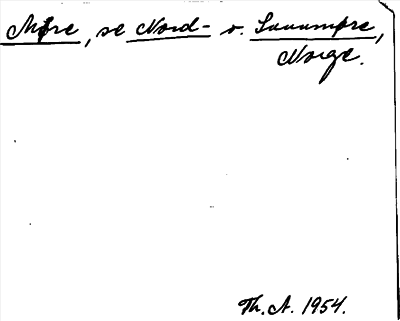 Møre, se Nord- o. Sunnmøre,
Norge.
Th. A. 1954.